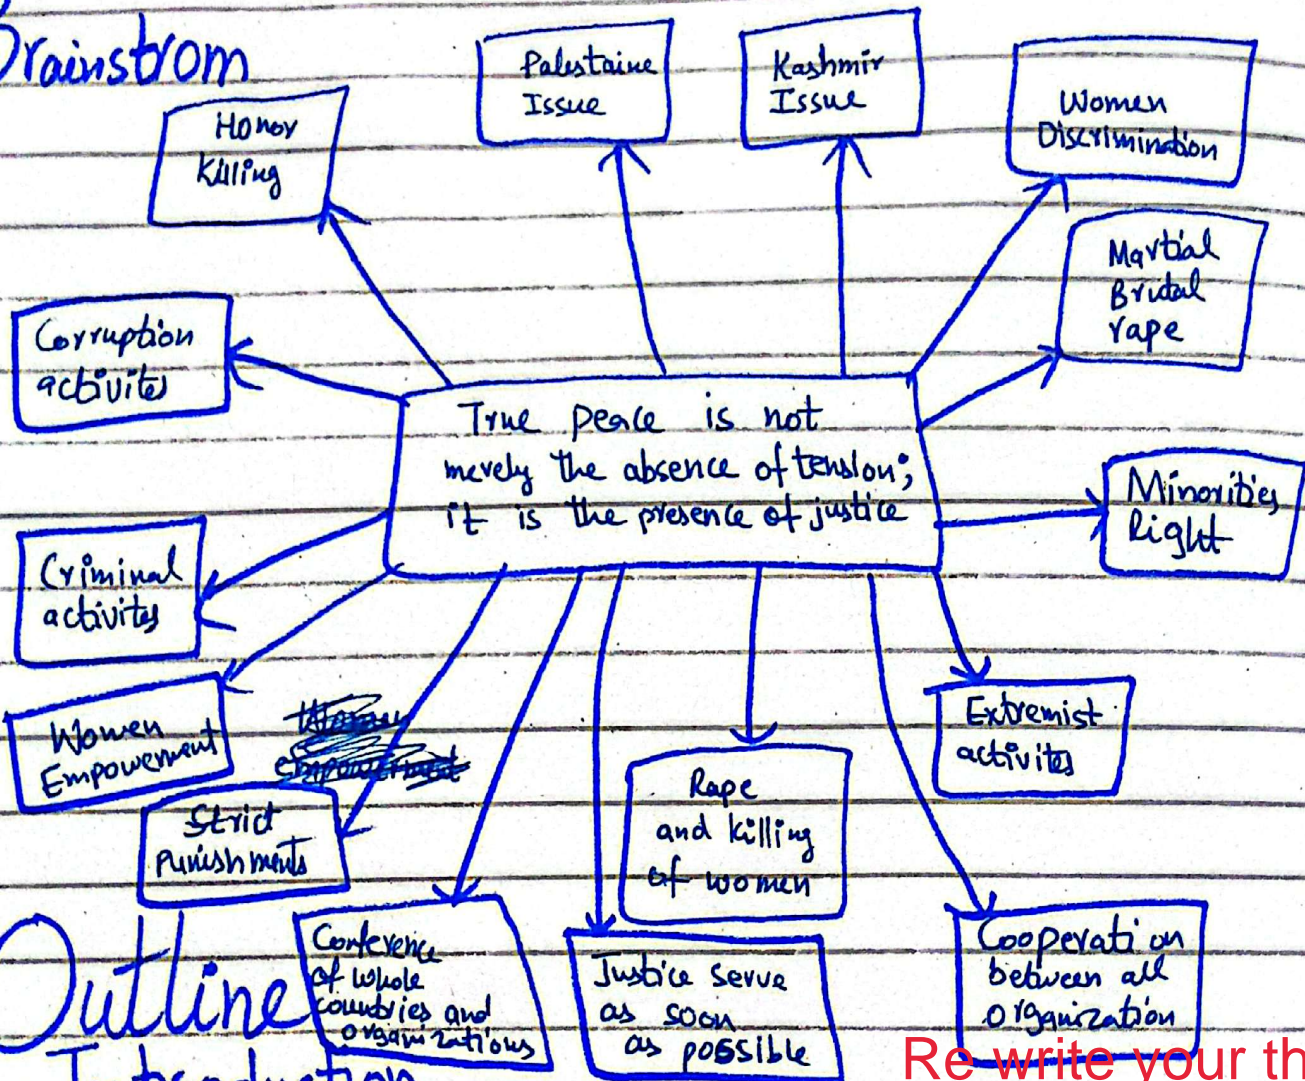 Brainstrom
Palestaine
Issue
Kashmir
Issue
Women
Discrimination
Honor
Killing
Martial
Brutal
rape
Corruption
activites
True peace is not
merely the absence of tension;
it is the presence of justice
Minorities
Right
Criminal
activites
Women
Empowerment
Women
Empowerment
Extremist
activites
Strict
punishments
Rape
and killing
of women
Conference
of whole
countries and
organizations
Justice serve
as soon
as possible
Cooperation
between all
organization
Outline
Introduction
Re write your th